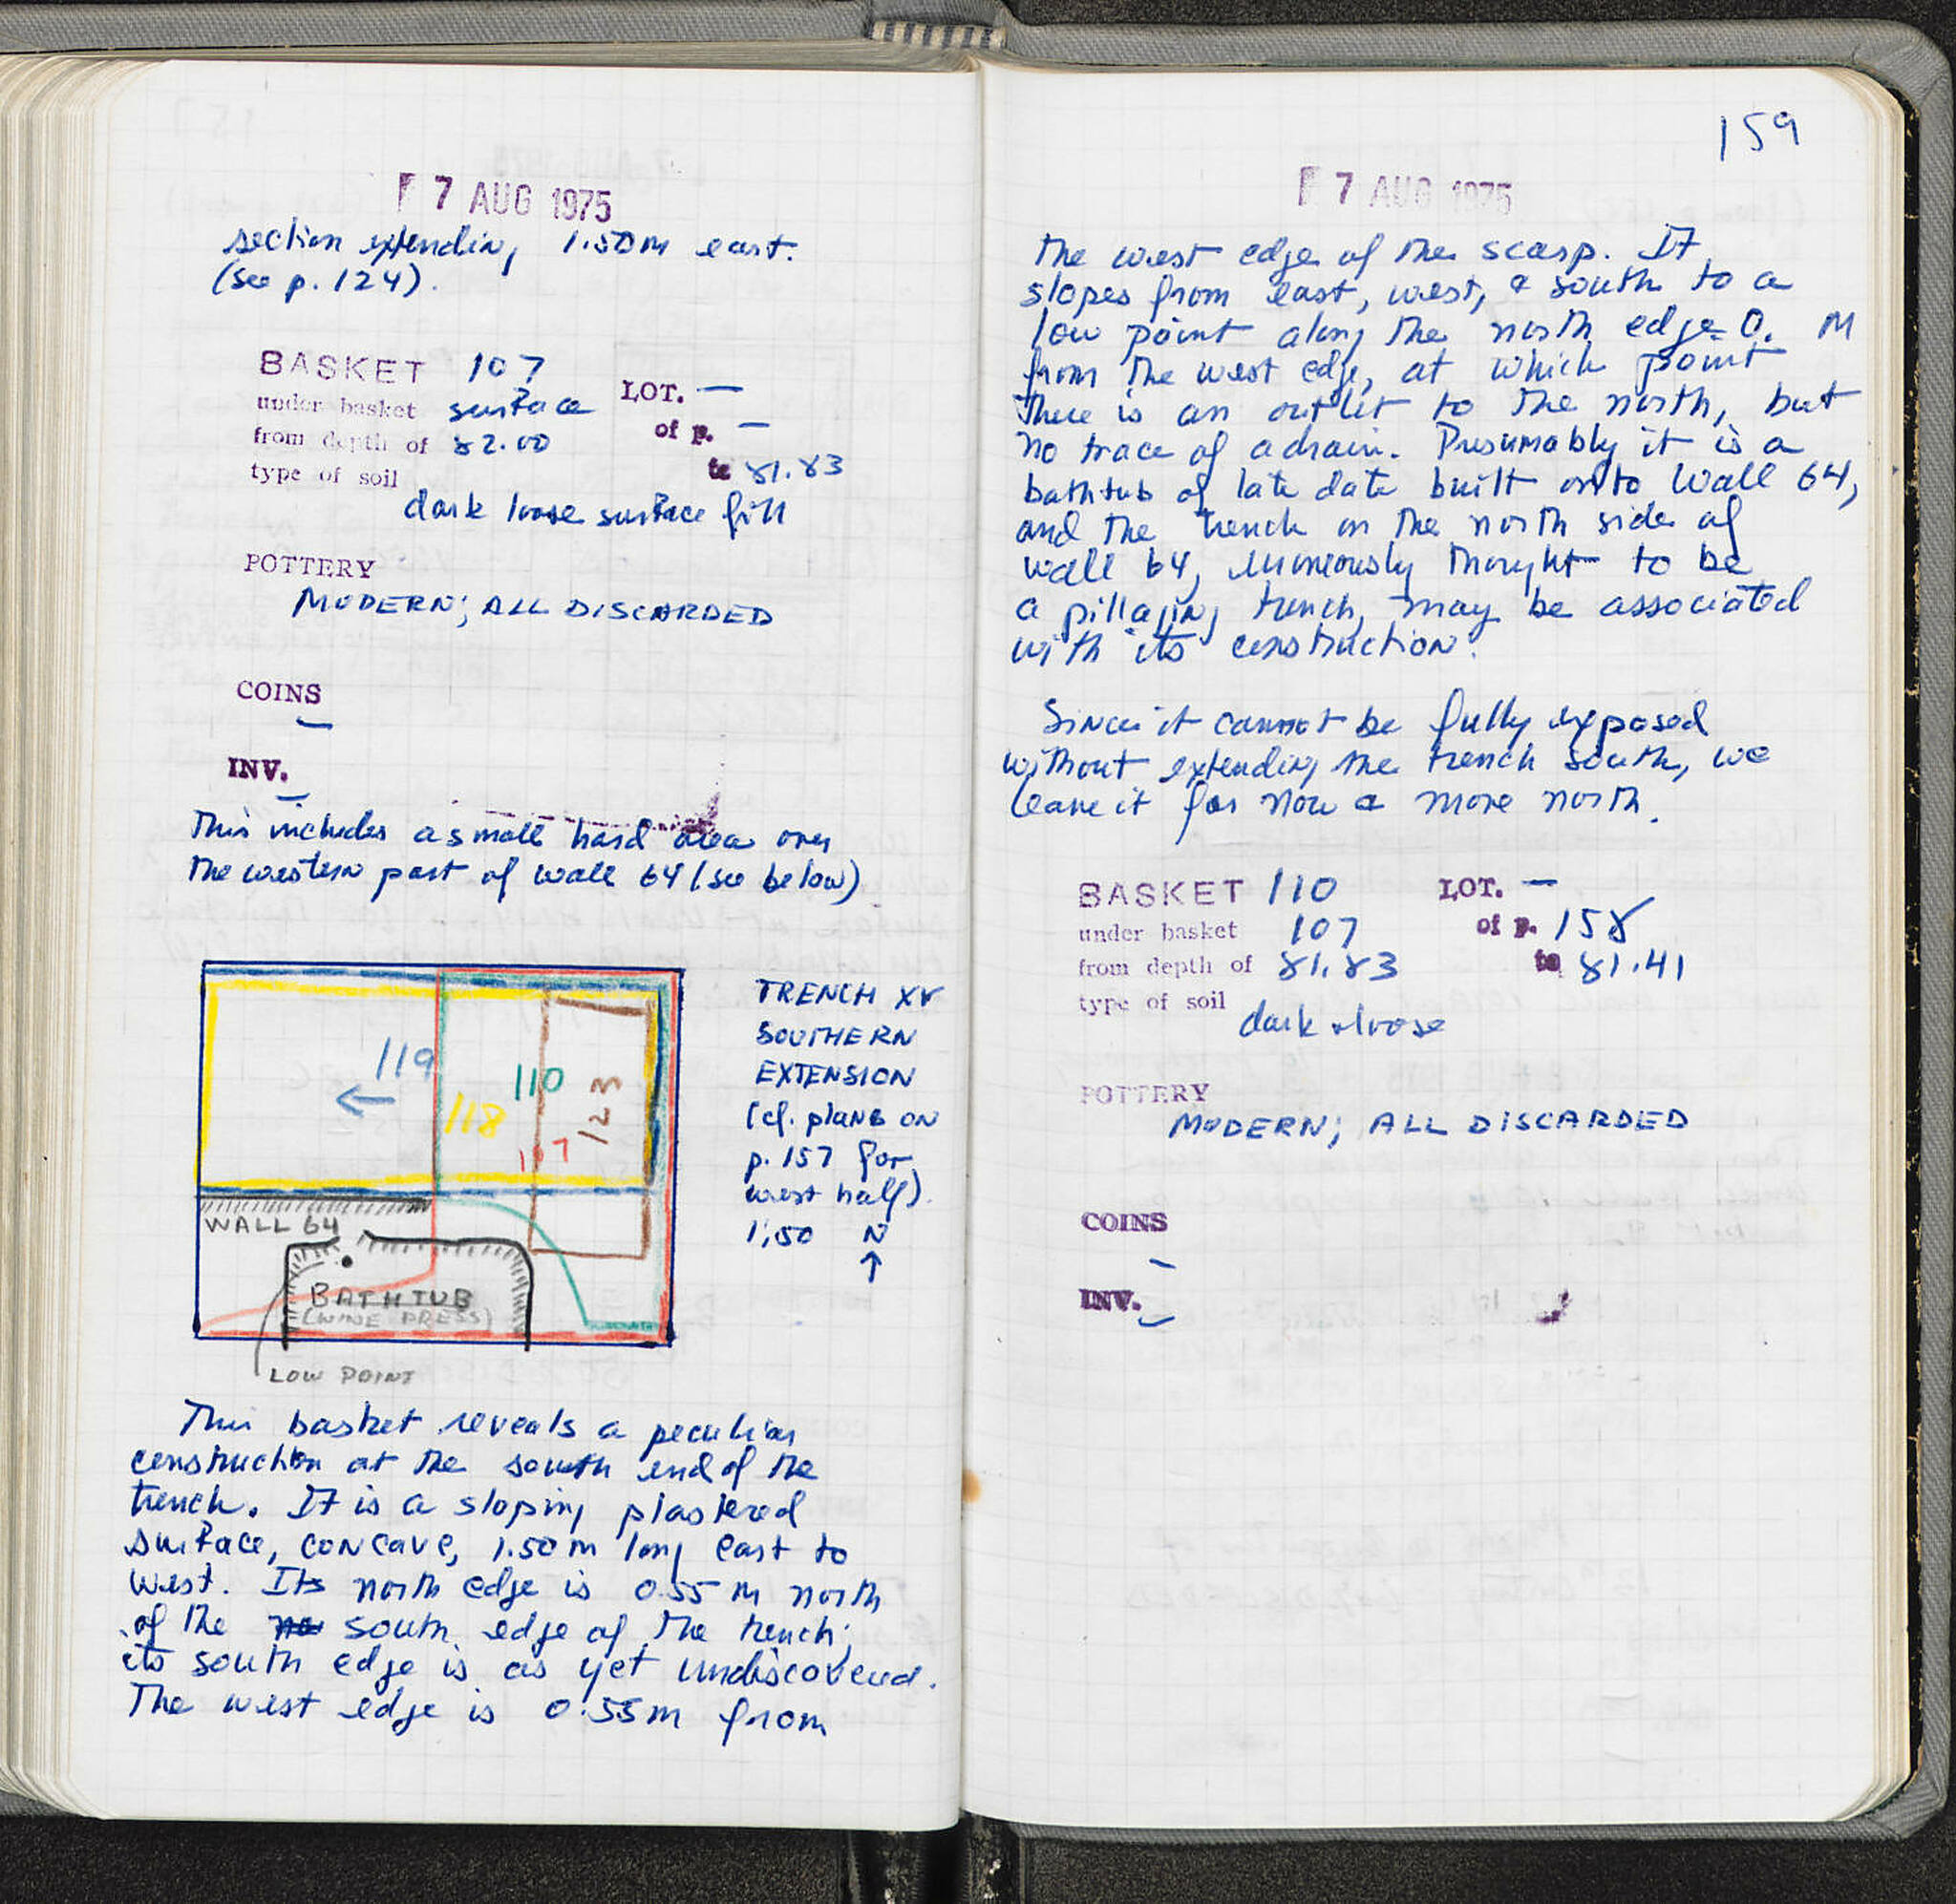 7 AUG 1975
section extending 1.50m east.
(see p. 124).
BASKET 107
under basket surface
LOT. —
from depth of 82.00
of p. —
type of soil
to 81.83
dark loose surface fill
POTTERY
MODERN; ALL DISCARDED
COINS
—
INV.
—
This includes a small hard area over
the western part of wall 64 (see below)
119
110
118
123
107
WALL 64
BATHTUB
(WINE PRESS)
LOW POINT
TRENCH XV
SOUTHERN
EXTENSION
(cf. plans on
p. 157 for
west half).
1:50 N
This basket reveals a peculiar
construction at the south end of the
trench. It is a sloping plastered
surface, concave, 1.50 m long east to
west. Its north edge is 0.55 m north
of the south edge of the trench;
its south edge is as yet undiscovered.
The west edge is 0.55m from
159
7 AUG 1975
the west edge of the scarp. It
slopes from east, west, & south to a
low point along the north edge 0. M
from the west edge, at which point
there is an outlet to the north, but
no trace of a drain. Presumably it is a
bathtub of late date built onto Wall 64,
and the trench on the north side of
wall 64, erroneously thought to be
a pillaging trench, may be associated
with its construction.
Since it cannot be fully exposed
without extending the trench south, we
leave it for now & move north.
BASKET 110
LOT. —
under basket 107
of p. 158
from depth of 81.83
to 81.41
type of soil
dark & loose
POTTERY
MODERN; ALL DISCARDED
COINS
—
INV.
—